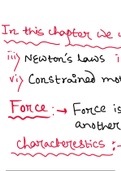 In this chapter we
iii) Newton's laws
vi) Constrained mo
Force :→ Force is
another
Characterestics :-